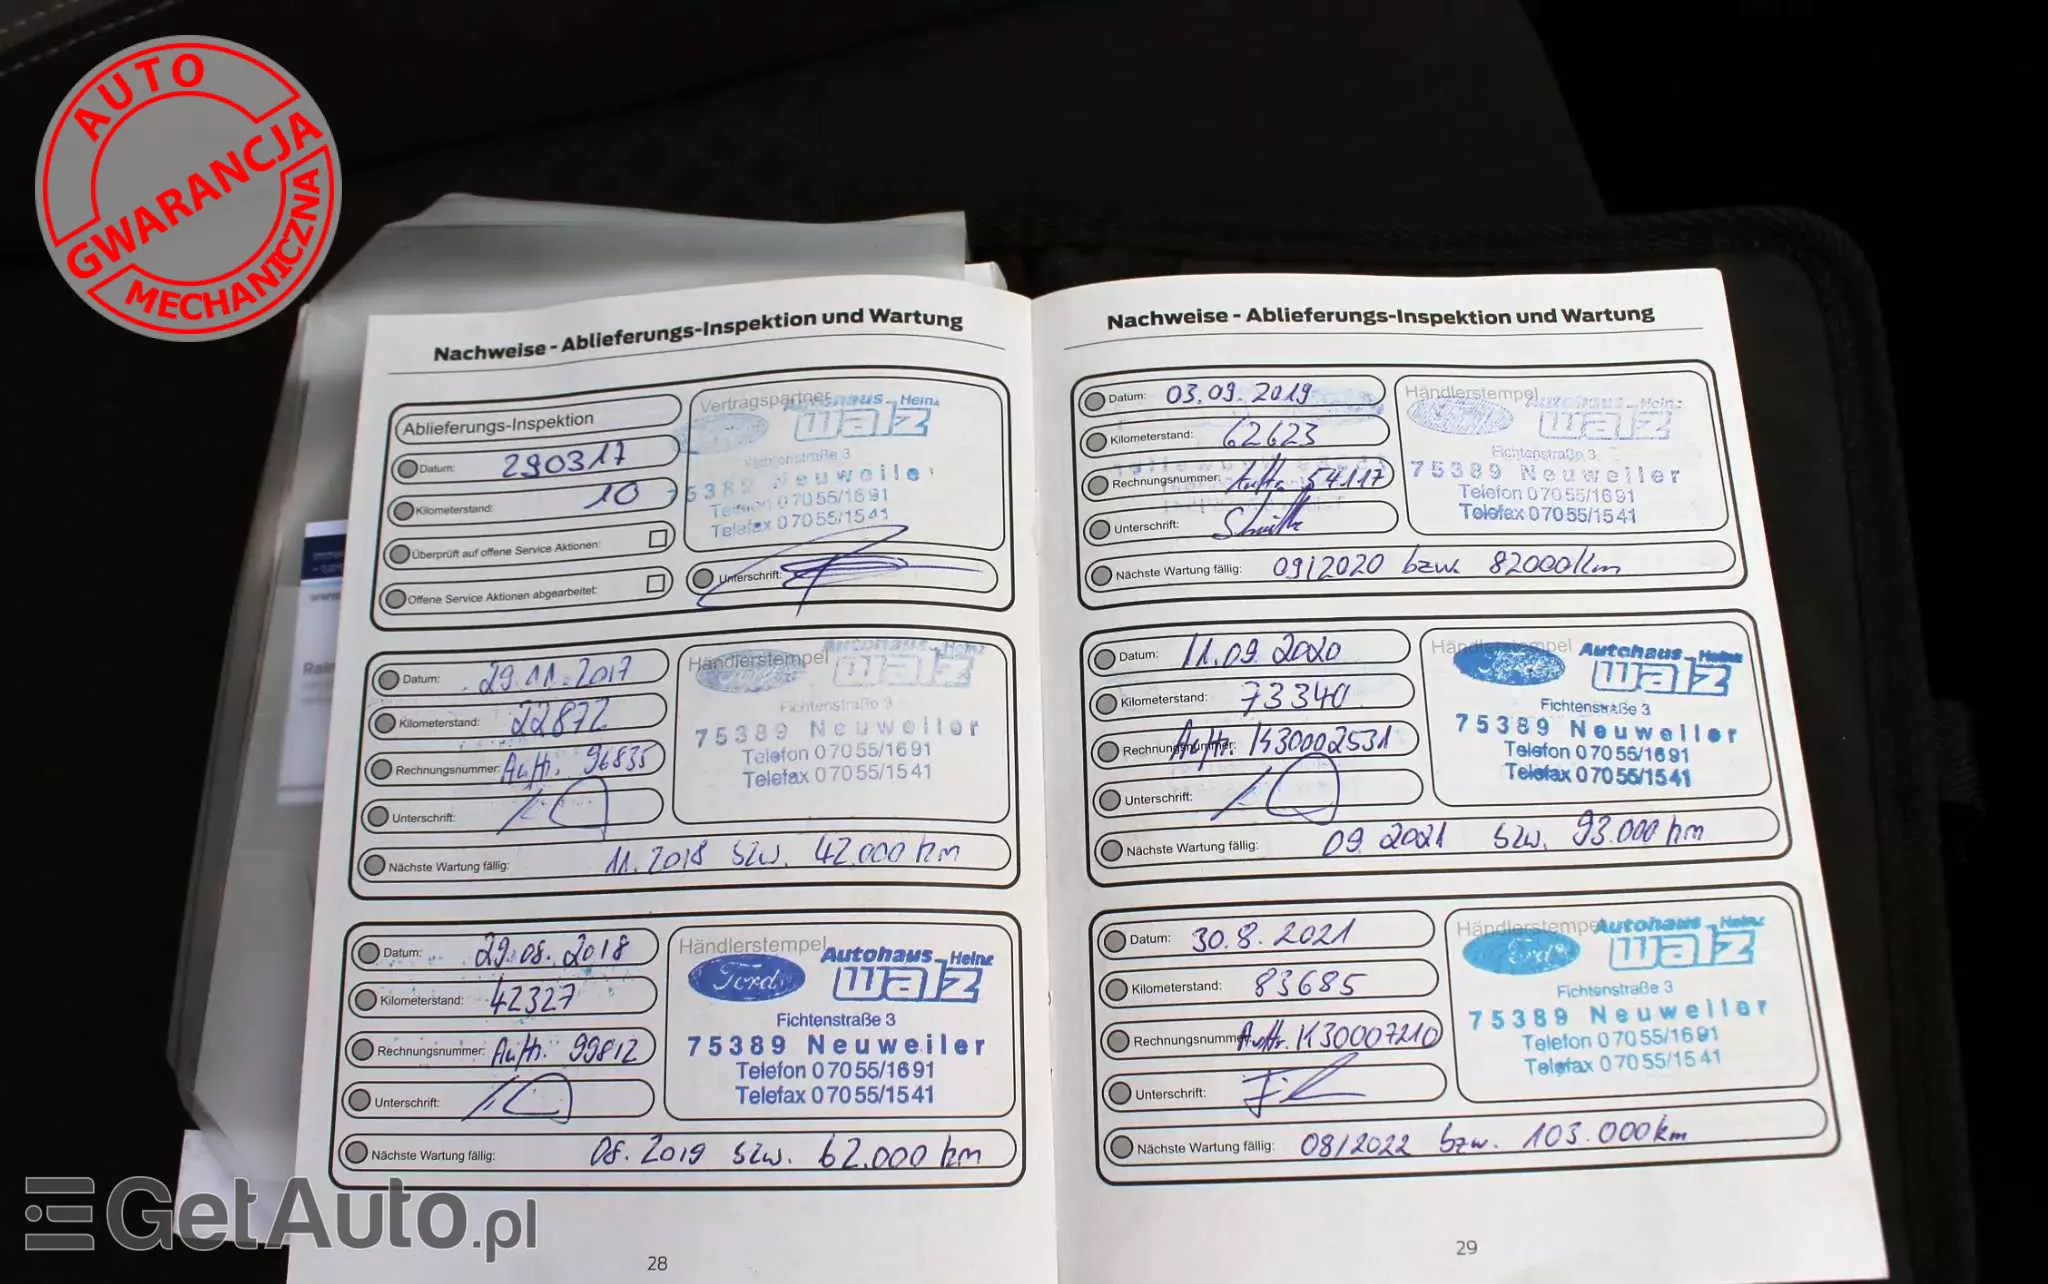 AUTO
GWARANCJA
MECHANICZNA
Nachweise - Ablieferungs-Inspektion und Wartung
Ablieferungs-Inspektion
Datum: 290317
Kilometerstand: 10
Überprüft auf offene Service Aktionen:
Offene Service Aktionen abgearbeitet:
Vertragspartner
Autohaus Heinz
walz
Fichtenstraße 3
75389 Neuweiler
Telefon 07055/1691
Telefax 07055/1541
Unterschrift:
Datum: 29.11.2017
Kilometerstand: 22872
Rechnungsnummer: Auftr. 96835
Unterschrift:
Händlerstempel
Autohaus Heinz
walz
Fichtenstraße 3
75389 Neuweiler
Telefon 07055/1691
Telefax 07055/1541
Nächste Wartung fällig: 11.2018 bzw. 42.000 km
Datum: 29.08.2018
Kilometerstand: 42327
Rechnungsnummer: Auftr. 99812
Unterschrift:
Händlerstempel
Ford
Autohaus Heinz
walz
Fichtenstraße 3
75389 Neuweiler
Telefon 07055/1691
Telefax 07055/1541
Nächste Wartung fällig: 08.2019 bzw. 62.000 km
28
Nachweise - Ablieferungs-Inspektion und Wartung
Datum: 03.09.2019
Kilometerstand: 62623
Rechnungsnummer: 54117
Unterschrift:
Händlerstempel
Autohaus Heinz
walz
Fichtenstraße 3
75389 Neuweiler
Telefon 07055/1691
Telefax 07055/1541
Nächste Wartung fällig: 09/2020 bzw. 82000/km
Datum: 11.09.2020
Kilometerstand: 73340
Rechnungsnummer: Auftr. K30002531
Unterschrift:
Händlerstempel
Ford
Autohaus Heinz
walz
Fichtenstraße 3
75389 Neuweiler
Telefon 07055/1691
Telefax 07055/1541
Nächste Wartung fällig: 09.2021 bzw. 93.000 km
Datum: 30.8.2021
Kilometerstand: 83685
Rechnungsnummer: Auftr. K30007210
Unterschrift:
Händlerstempel
Ford
Autohaus Heinz
walz
Fichtenstraße 3
75389 Neuweiler
Telefon 07055/1691
Telefax 07055/1541
Nächste Wartung fällig: 08/2022 bzw. 103.000km
29
GetAuto.pl